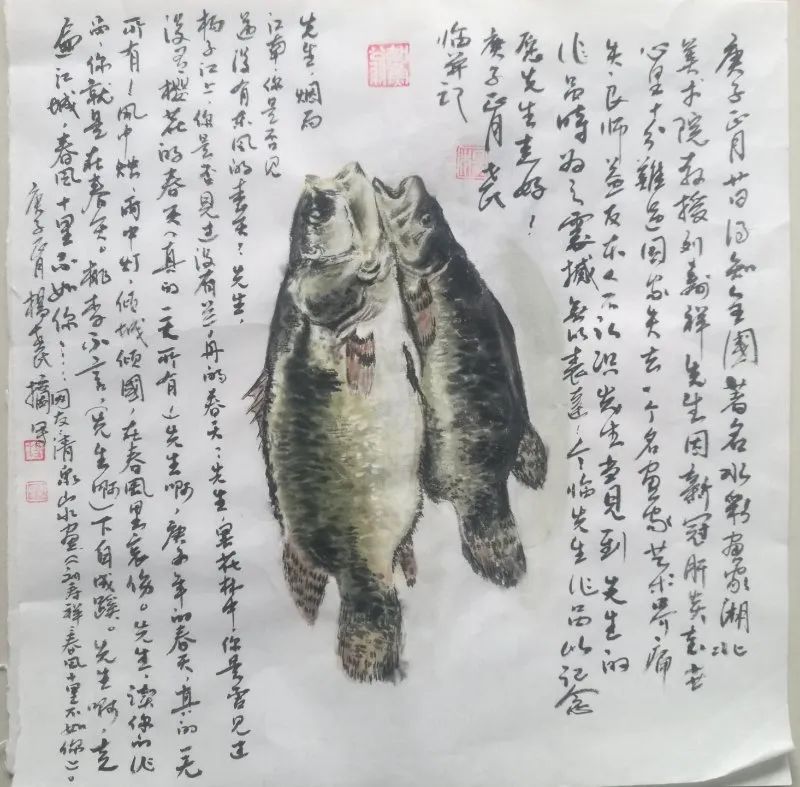 庚子正月廿日得知全國著名水彩畫家湖北
美术院教授刘壽祥先生因新冠肺炎去世
心里十分難过国家失去一个名画家艺术界痛
失良师益友本人不认识先生当见到先生的
作品時为之震撼無以表達今临先生作品以记念
愿先生走好！
庚子正月老民
临并记
先生，烟雨
江南你是否见
过没有东风的春天？先生，
杨子江上，你是否见过没有兰舟的春天？先生，杏花林中，你是否见过
没有樱花的春天（真的一无所有）先生啊，庚子年的春天，真的一无
所有！風中烛，雨中灯，倾城倾國，在春風里哀伤。先生，讀你的作
品，你就是在春天。桃李不言，（先生啊）下自成蹊。先生啊，走
遍江城，春風十里不如你……网友清泉山水畫《刘寿祥春風十里不如你》。
庚子正月楊老民摘写